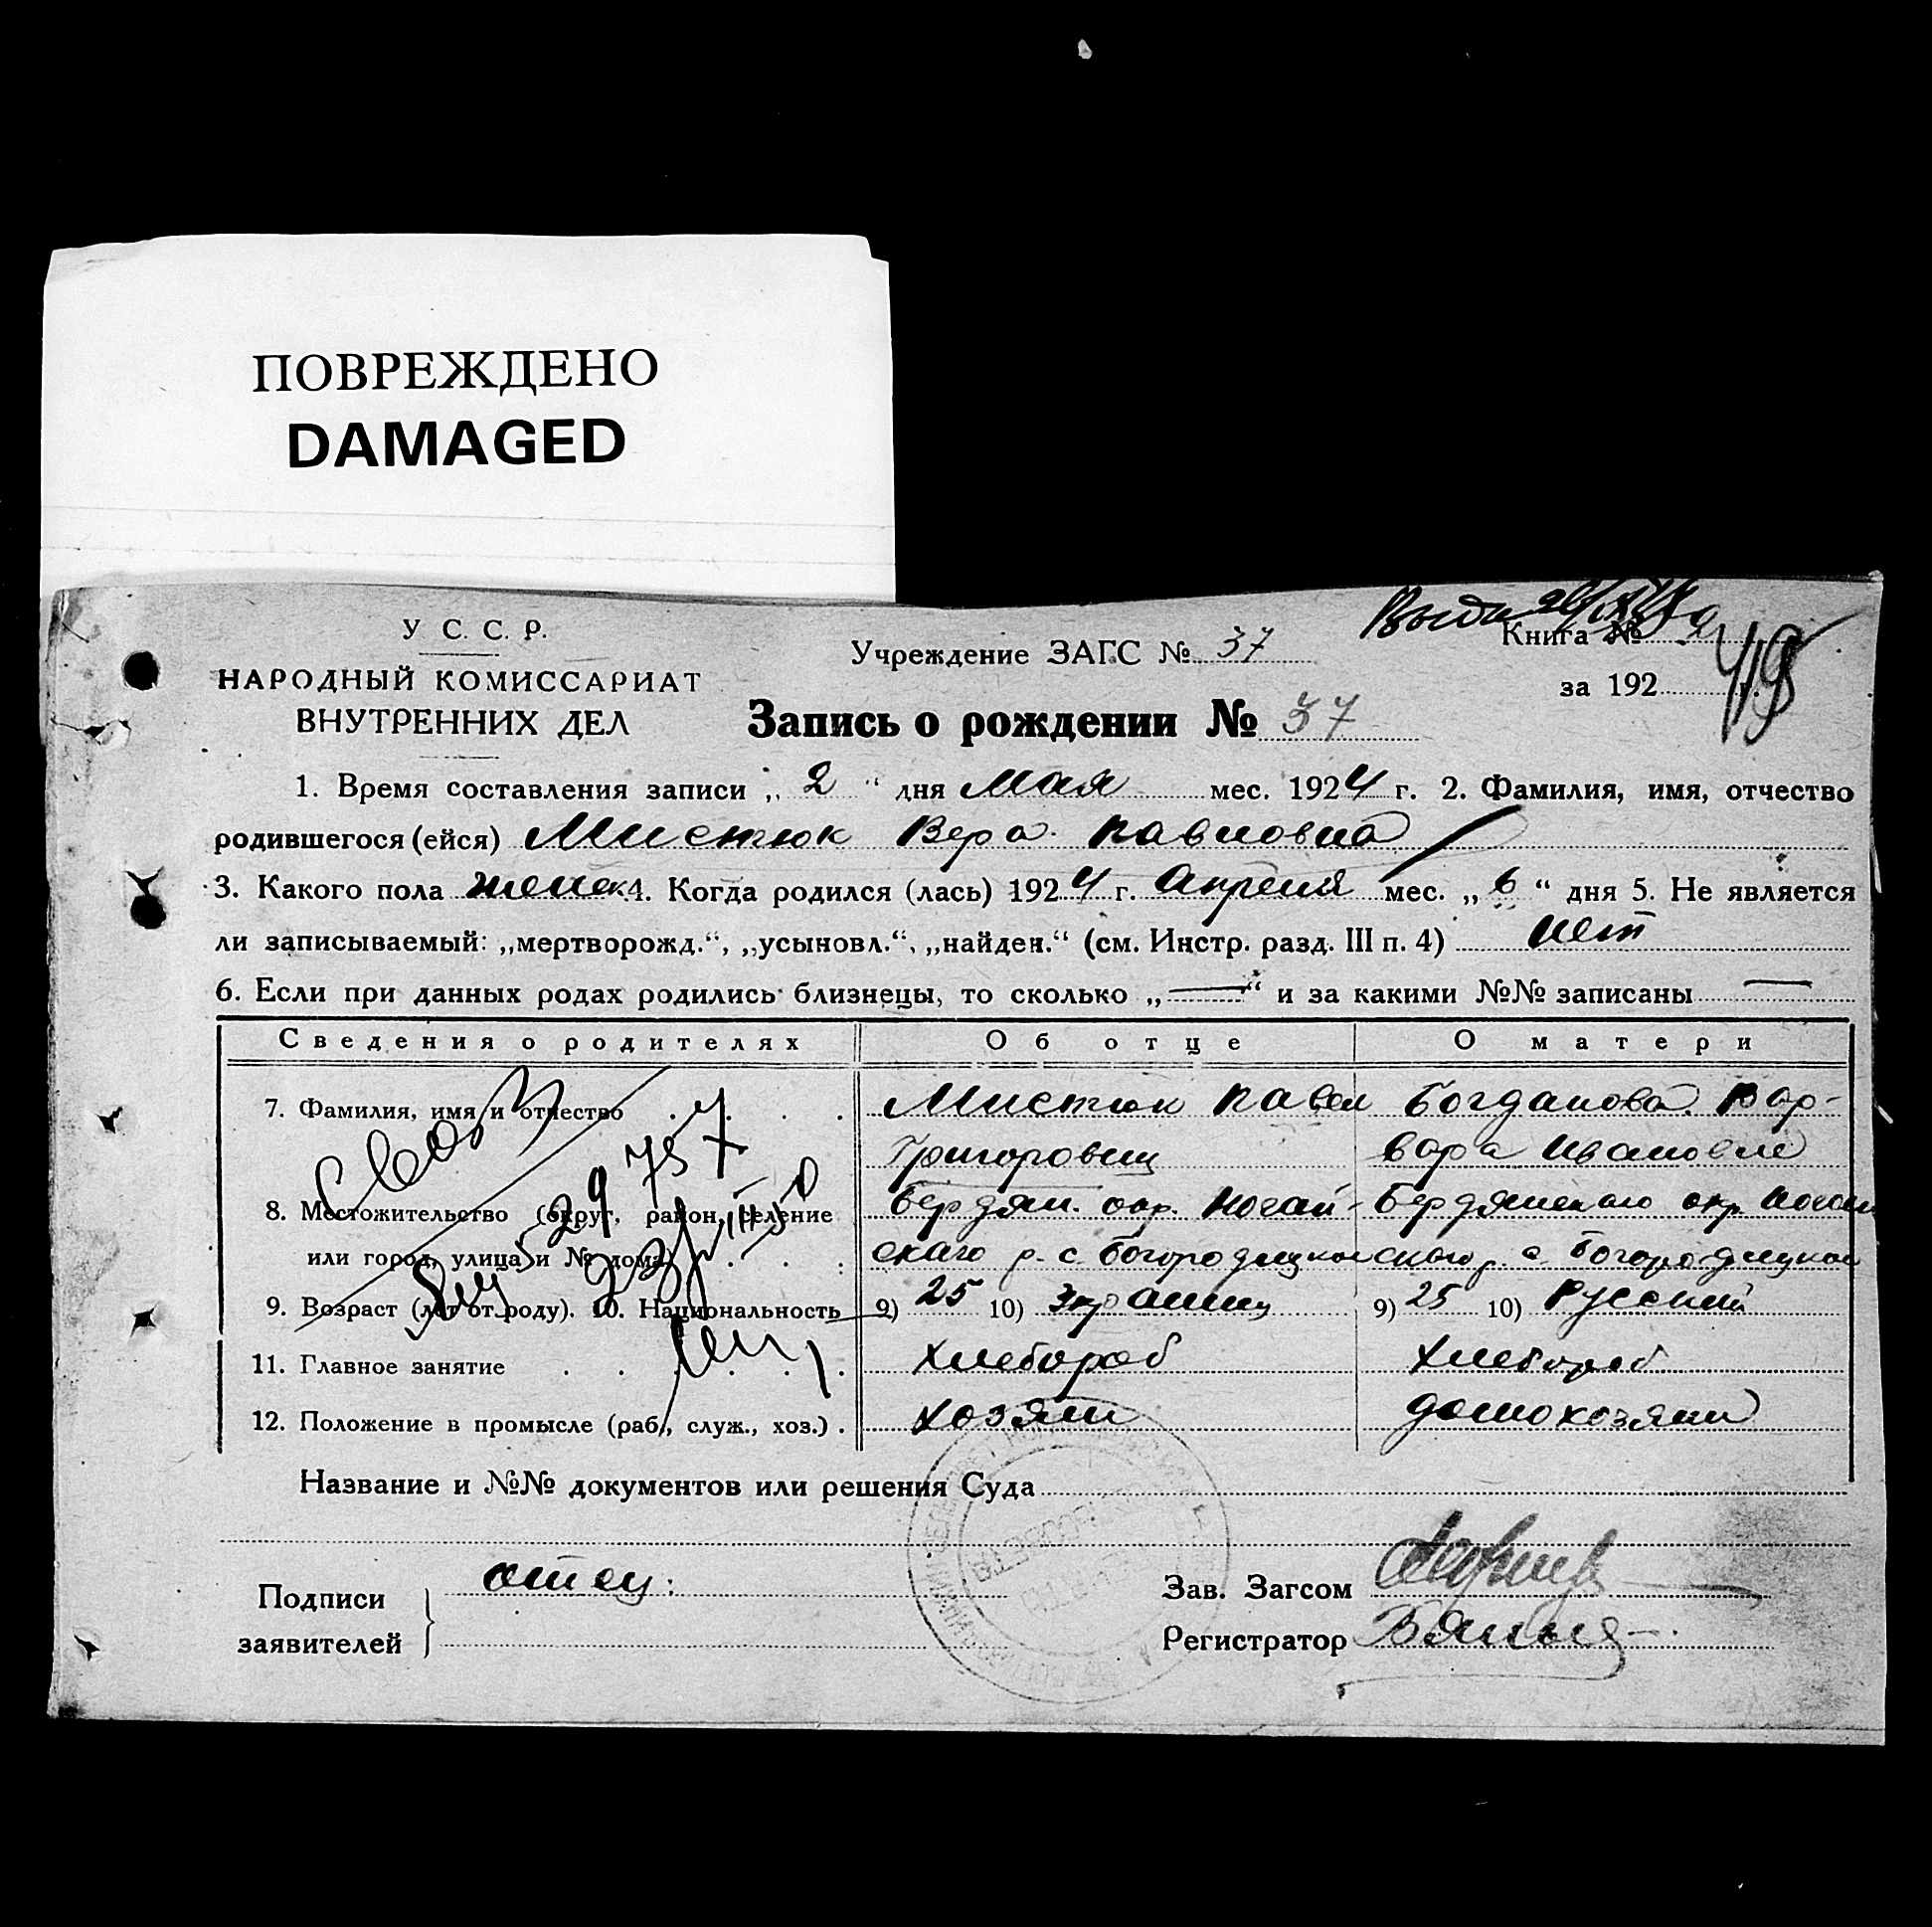 ПОВРЕЖДЕНО
DAMAGED
У С. С. Р.
НАРОДНЫЙ КОМИССАРИАТ
ВНУТРЕННИХ ДЕЛ
Учреждение ЗАГС № 37
Книга №
за 192 г.
Запись о рождении № 37
1. Время составления записи „ 2 “ дня Мая мес. 1924 г. 2. Фамилия, имя, отчество
родившегося (ейся) Мистюк Вера Павловна
3. Какого пола женск 4. Когда родился (лась) 1924 г. Апреля мес. „ 6 “ дня 5. Не является
ли записываемый: „мертворожд.“, „усыновл.“, „найден.“ (см. Инстр. разд. III п. 4) нет
6. Если при данных родах родились близнецы, то сколько „ — “ и за какими №№ записаны —
Сведения о родителях Об отце О матери
7. Фамилия, имя и отчество Мистюк Павел Богданова Вар-
Григорович вара Ивановне
8. Местожительство (округ, район, селение Бердян. окр. Ногай- Бердянскаго окр. Ногай
или город, улица и № дома) скаго р. с. Богородицкое р. с. Богородицкое
9. Возраст (лет от роду). 10. Национальность 9) 25 10) 9) 25 10) Русский
11. Главное занятие Хлебороб Хлебороб
12. Положение в промысле (раб., служ., хоз.) хозяин домохозяин
Название и №№ документов или решения Суда
Подписи
заявителей
отец:
Зав. Загсом
Регистратор